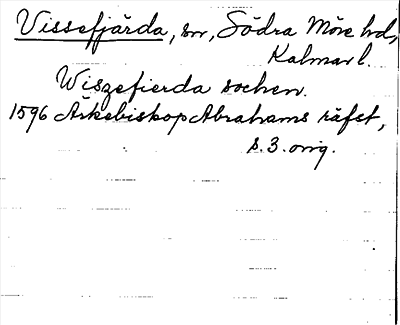 Vissefjärda, sn, Södra Möre hd,
Kalmar l.
Wiszefierda sochen.
1596 Ärkebiskop Abrahams räfst,
s. 3. orig.